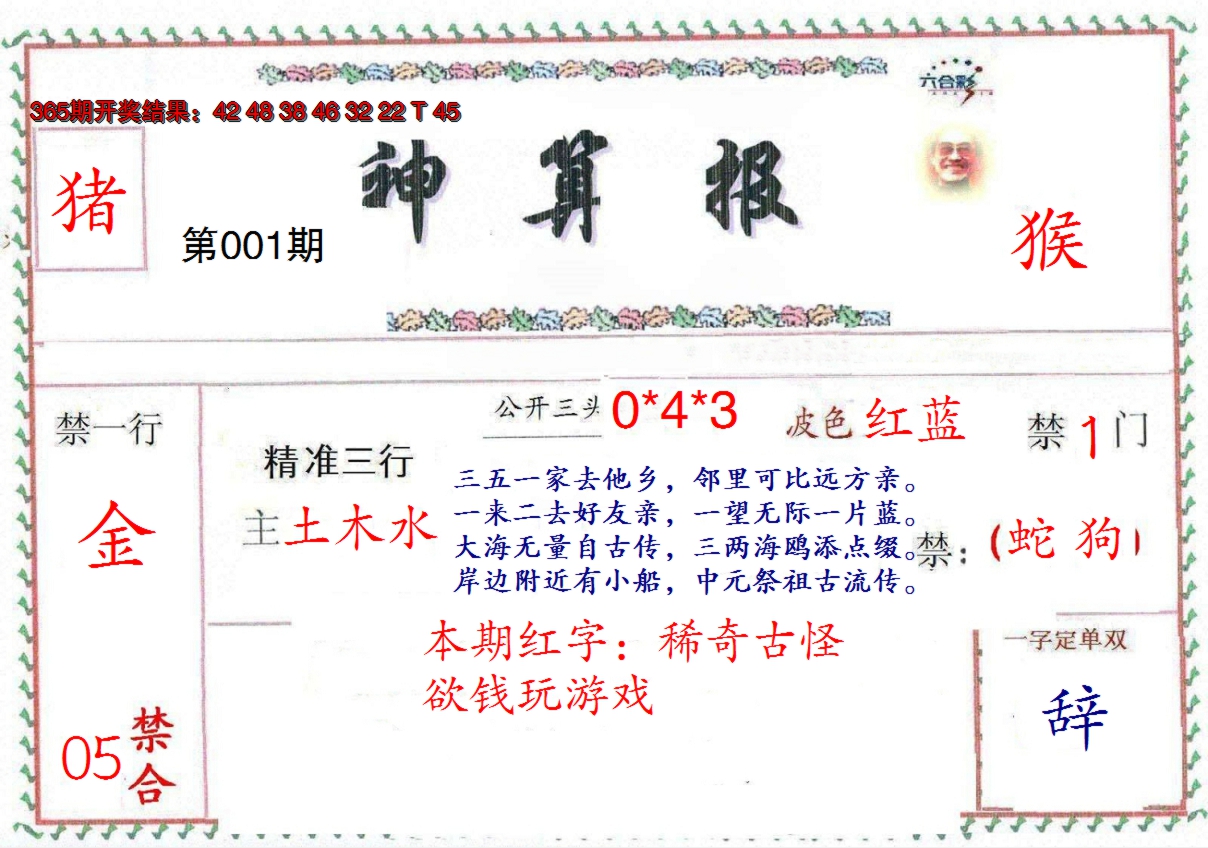 六合彩
365期开奖结果：42 48 38 46 32 22 T 45
神算报
猪
第001期
猴
禁一行
金
05
禁合
精准三行
主土木水
公开三头
0*4*3
波色红蓝
禁1门
三五一家去他乡，邻里可比远方亲。
一来二去好友亲，一望无际一片蓝。
大海无量自古传，三两海鸥添点缀。
岸边附近有小船，中元祭祖古流传。
禁：(蛇 狗)
本期红字：稀奇古怪
欲钱玩游戏
一字定单双
辞